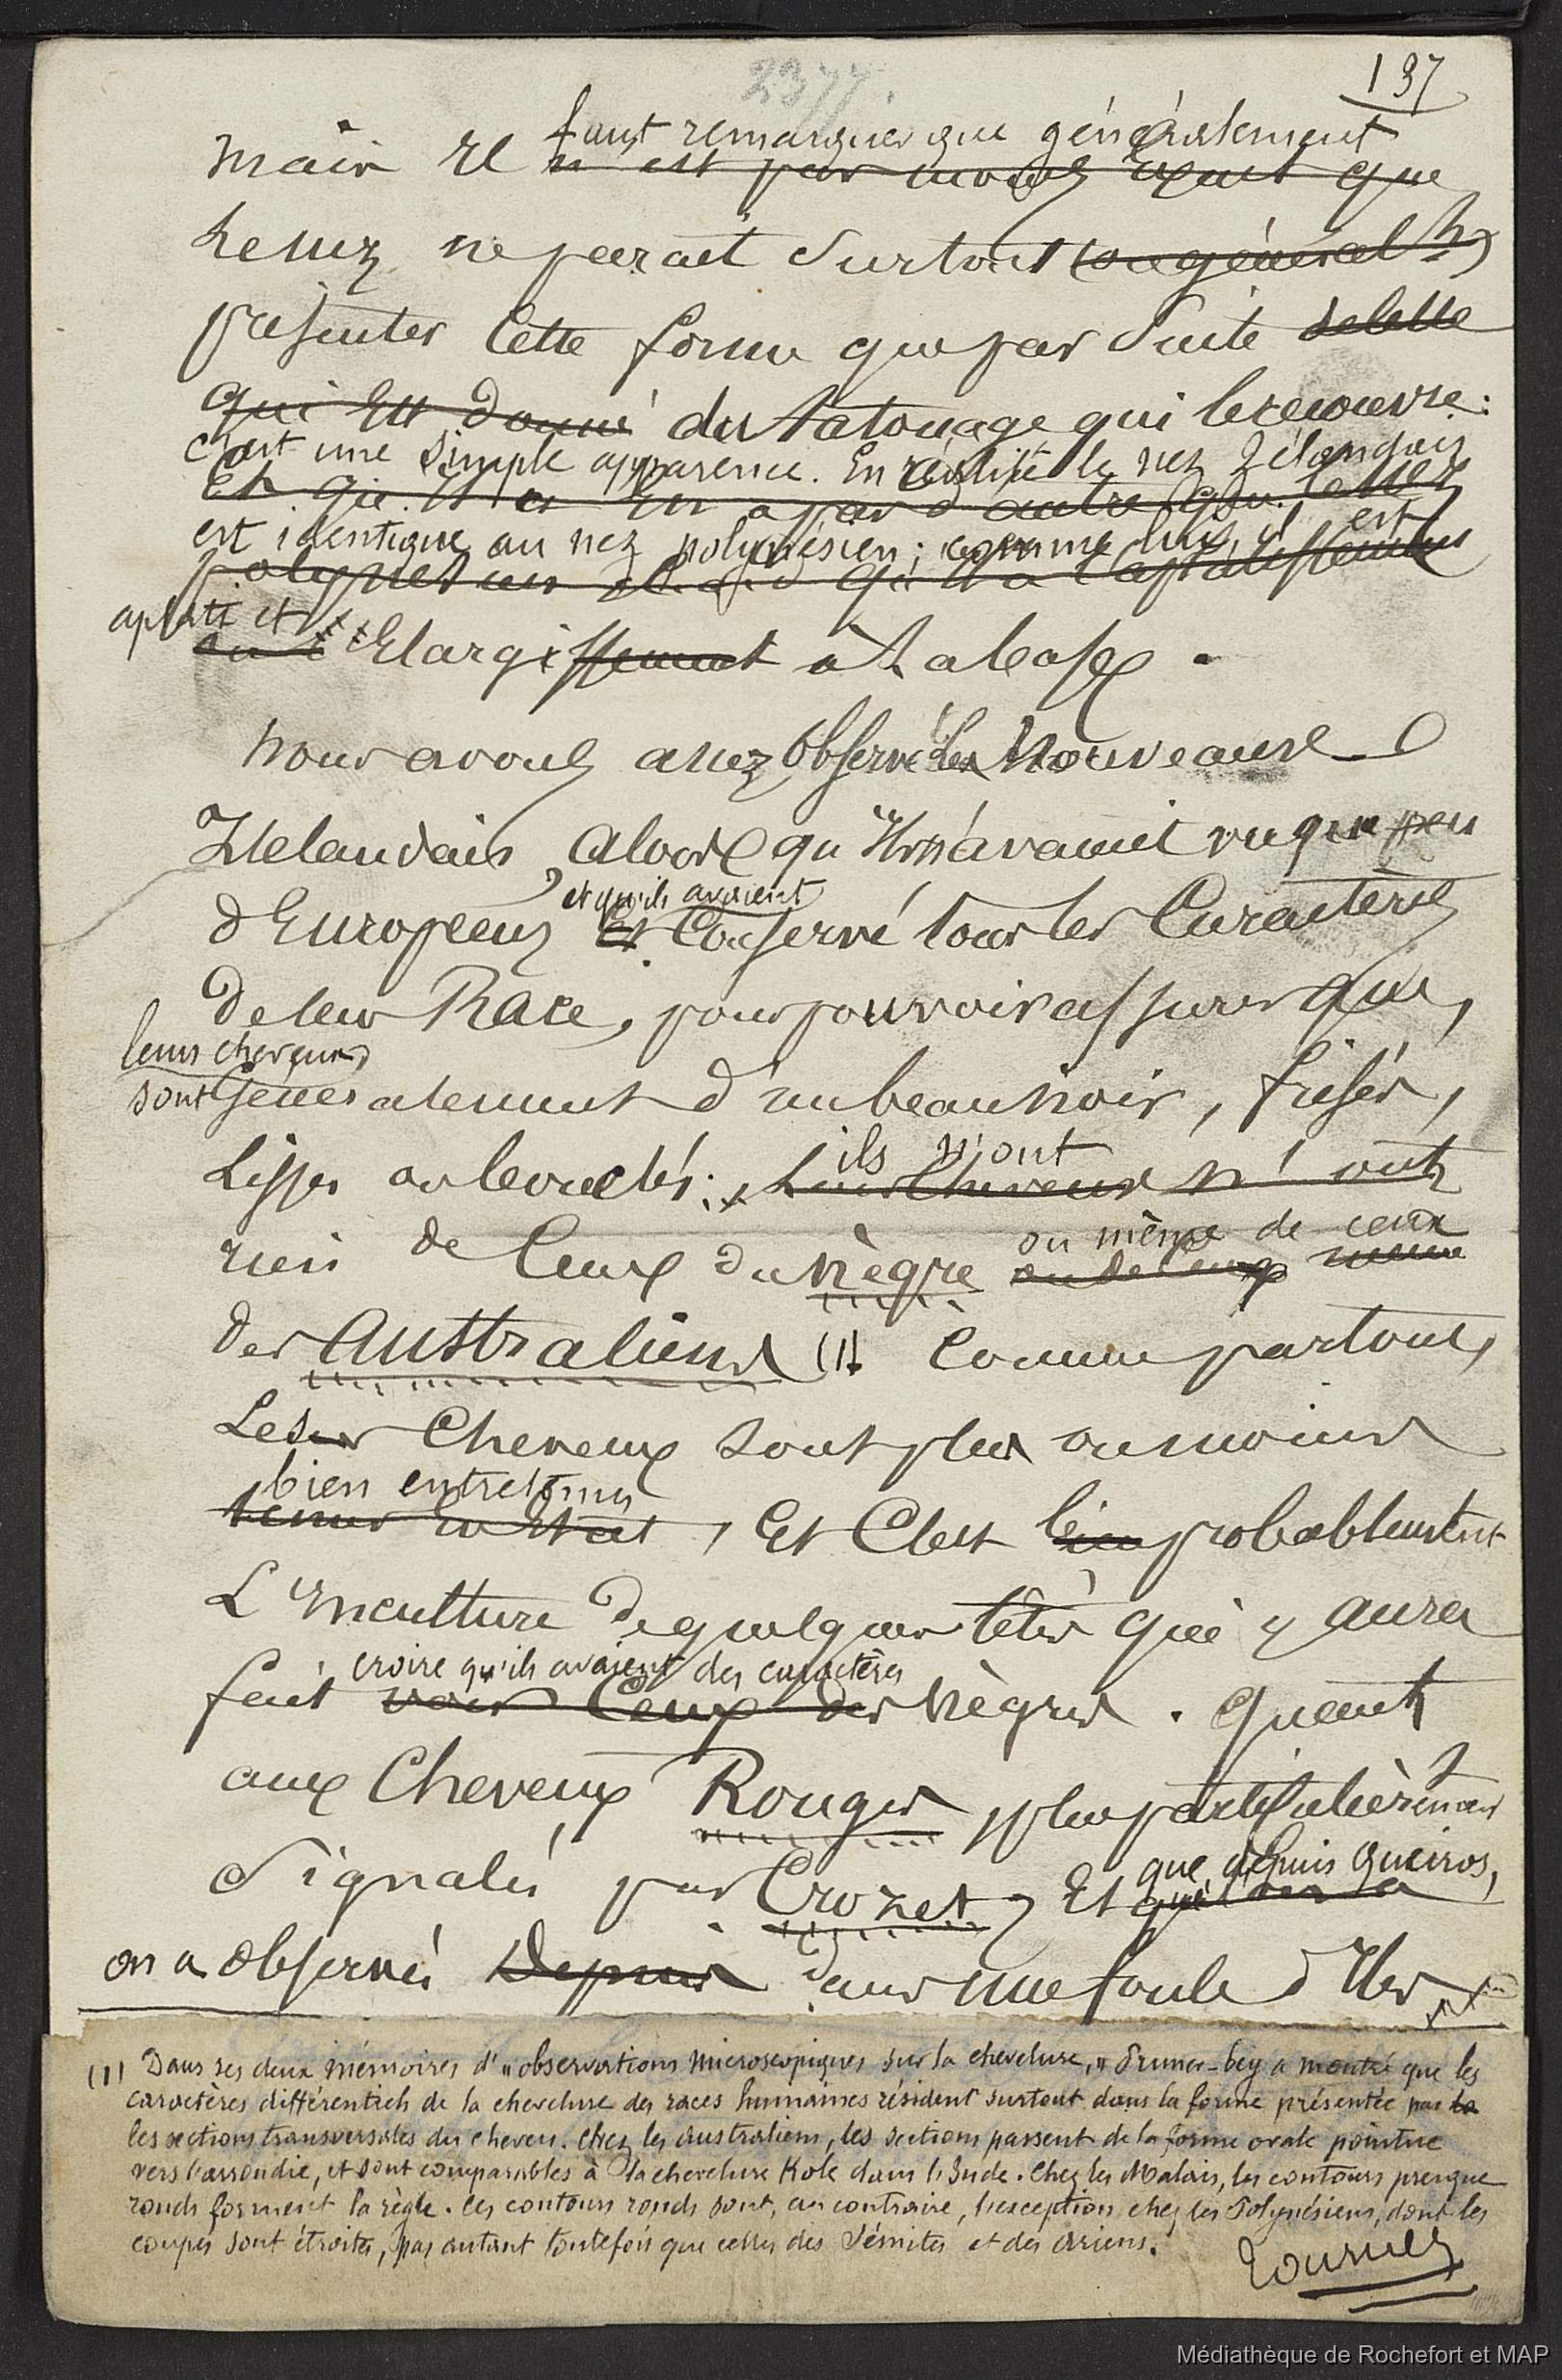 2377.
137
mais il faut remarquer que généralement
n'est pas moins exact que
le nez ne parait surtout (en général)
présenter cette forme que par suite de celle
qui est donné du tatouage qui le recouvre :
c'est une simple apparence. En réalité le nez Zélandais
et qu'il n'en a pas d'autre que le nez
est identique au nez polynésien ; comme lui, il est
polynésien qu'il a l'aplatissement
aplati et
ou l' Elargissement à la base .
nous avons assez observé les Nouveaux-
Zelandais, alors qu'ils n'avaient vu que peu
et qu'ils avaient
d'Européens et Conservé tous les Caractères
de leur Race, pour pouvoir assurer que,
leurs cheveux
sont Généralement d'un beau noir, frisés,
ils n'ont
Lisses ou bouclés ; Leurs Cheveux n'ont
ou même de ceux
rien de Ceux du Nègre ou de ceux même
des Australiens (1). Comme partout,
Les Cheveux sont plus ou moins
bien entretenus
tenus en Etat, Et C'est bien probablement
L'inculture de quelques têtes qui y aura
croire qu'ils avaient des caractères
fait voir Ceux des Nègres. Quant
aux Cheveux Rouges plus particulièrement
que, depuis Queiros,
Signalés par Crozet, Et que l'on a
on a observés Depuis dans une foule d'Iles
(1) Dans ses deux mémoires d'"observations microscopiques sur la chevelure," Pruner-bey a montré que les
caractères différentiels de la chevelure des races humaines résident surtout dans la forme présentée par la
les sections transversales du cheveu. Chez les Australiens, les sections passent de la forme ovale pointue
vers l'arrondie, et sont comparables à la chevelure Kole dans l'Inde. Chez les Malais, les contours presque
ronds forment la règle. Ces contours ronds sont, au contraire, l'exception chez les Polynésiens, dont les
coupes sont étroites, pas autant toutefois que celles des Sémites et des Ariens.
Tournez
Médiathèque de Rochefort et MAP